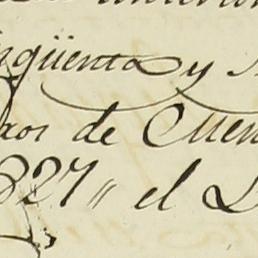 ngüenta y
ros de Cuen
827 " el